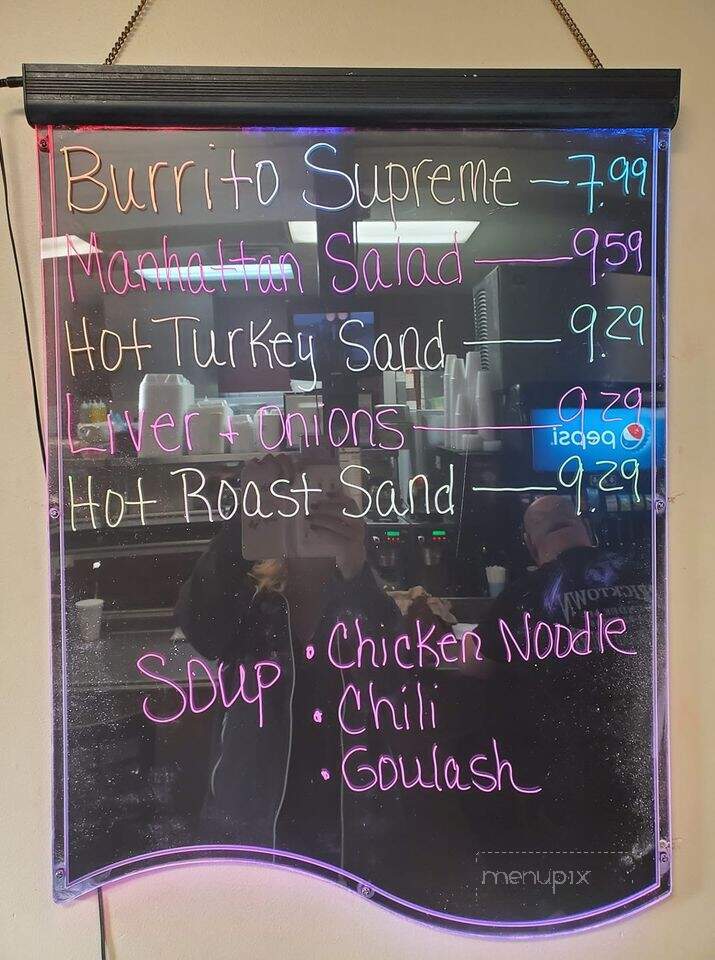 Burrito Supreme — 7.99
Manhattan Salad — 9.59
Hot Turkey Sand — 9.29
Liver + Onions — 9.29
pepsi
Hot Roast Sand — 9.29
Soup • Chicken Noodle
• Chili
• Goulash
menupix